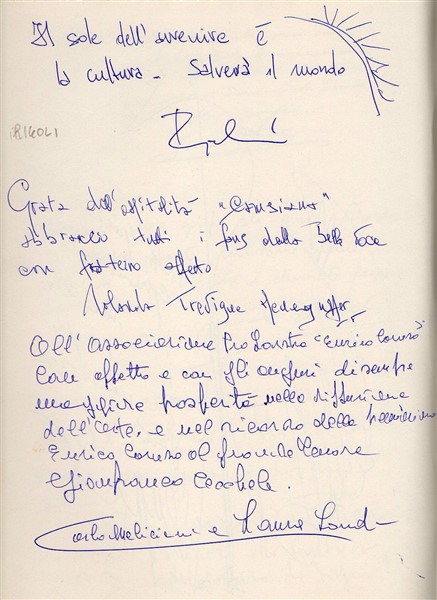 Il sole dell'avvenire è
la cultura - Salverà il mondo
RIGOLI
Grata dell'ospitalità "Carusiana"
abbraccio tutti i fans della Bella Voce
con fraterno affetto
Yolanda Trevigne
All'Associazione Pro Lastra "Enrico Caruso"
Con affetto e con gli auguri di sempre
maggiore prosperità nella diffusione
dell'arte, e nel ricordo della
Enrico Caruso al grande Tenore
Gianfranco Cecchele.
Carlo Meliciani e